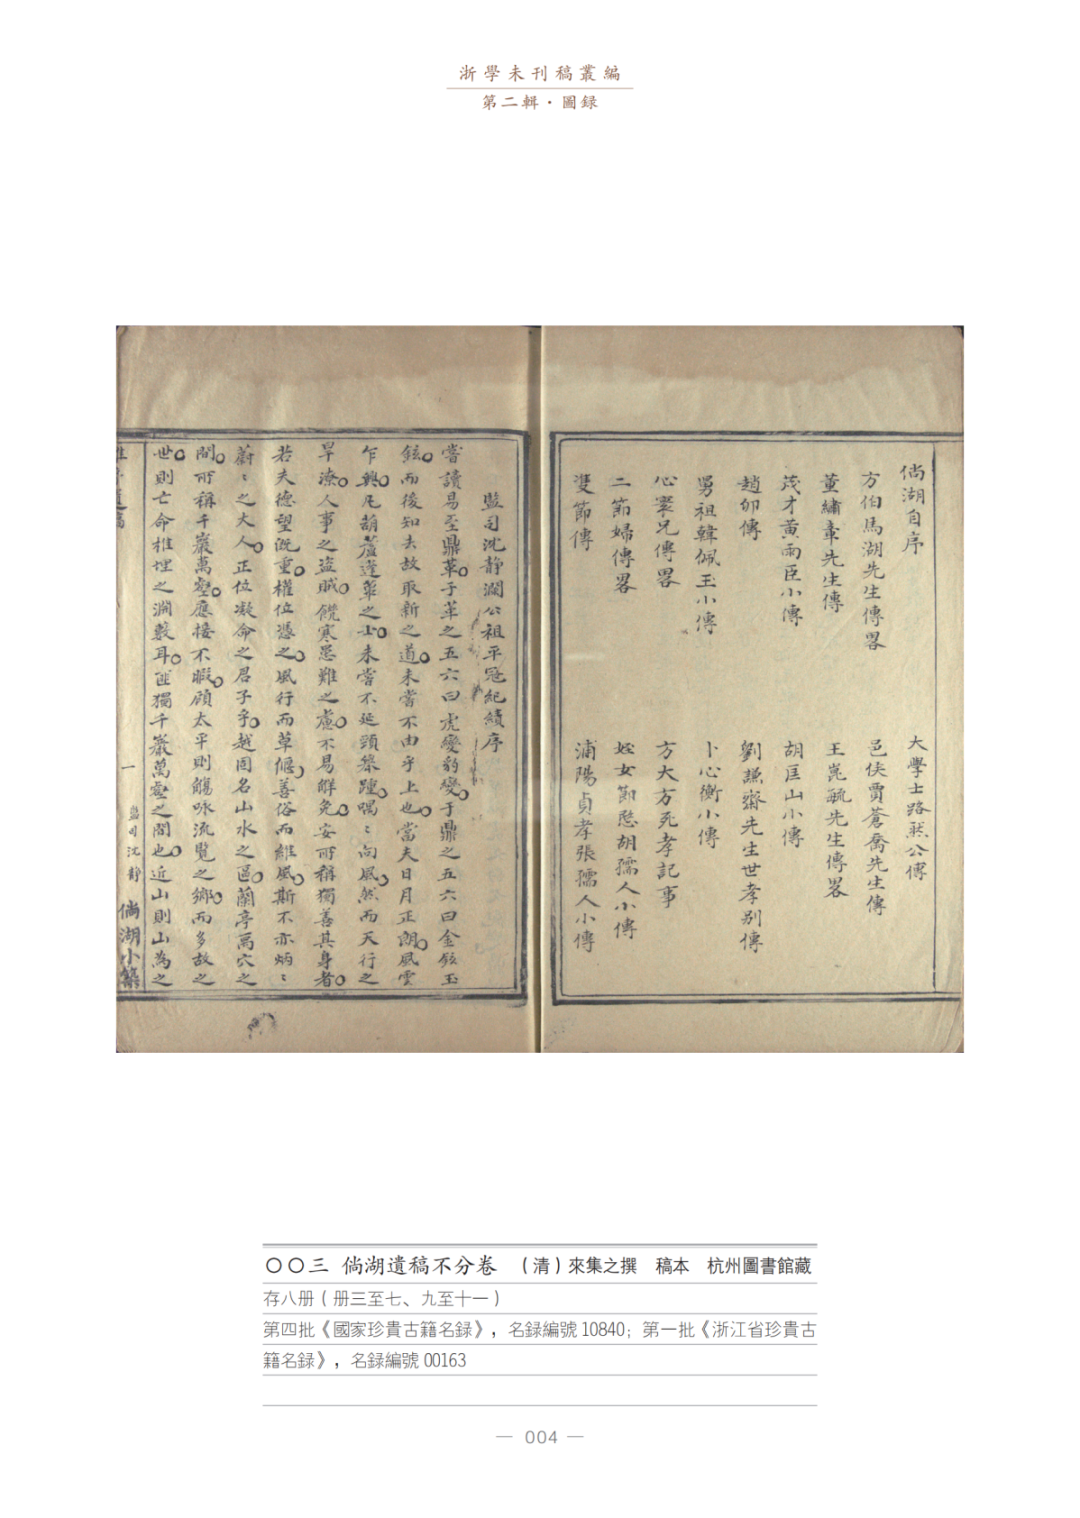 浙學未刊稿叢編
第二輯·圖録
倘湖自序
大學士路然公傳
方伯馬湖先生傳畧
邑侯賈蒼喬先生傳
董繡章先生傳
王崑毓先生傳畧
茂才黃雨臣小傳
胡匡山小傳
趙卯傳
劉謙齋先生世孝别傳
舅祖韓佩玉小傳
卜心衡小傳
心寰兄傳畧
方大方死孝記事
二節婦傳畧
姪女節愍胡孺人小傳
雙節傳
浦陽貞孝張孺人小傳
監司沈靜瀾公祖平寇紀績序
嘗讀易至鼎革于革之五六曰虎變豹變于鼎之五六曰金鉉玉
鉉而後知去故取新之道未嘗不由乎上也當夫日月正朗風雲
乍興凡葫蘆蓬蓽之士未嘗不延頸築踵喁〻向風然而天行之
旱潦人事之盜賊饑寒患難之慮不易解免安所稱獨善其身者
若夫德望旣重權位憑之風行而草偃善俗而維風斯不亦炳〻
蔚〻之大人正位凝命之君子乎越固名山水之區蘭亭禹穴之
間所稱千巖萬壑應接不暇顧太平則觴咏流覽之鄉而多故之
世則亡命椎埋之淵藪耳匪獨千巖萬壑之間也近山則山爲之
一
監司沈靜
倘湖小築
〇〇三 倘湖遺稿不分卷 （清）來集之撰 稿本 杭州圖書館藏
存八册（册三至七、九至十一）
第四批《國家珍貴古籍名録》，名録編號 10840；第一批《浙江省珍貴古
籍名録》，名録編號 00163
— 004 —